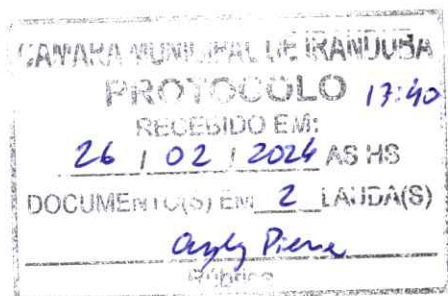 CAMARA MUNICIPAL DE IRANDUBA
PROTOCOLO 17:40
RECEBIDO EM:
26 / 02 / 2024 AS HS
DOCUMENTO(S) EM 2 LAUDA(S)
Rúbrica